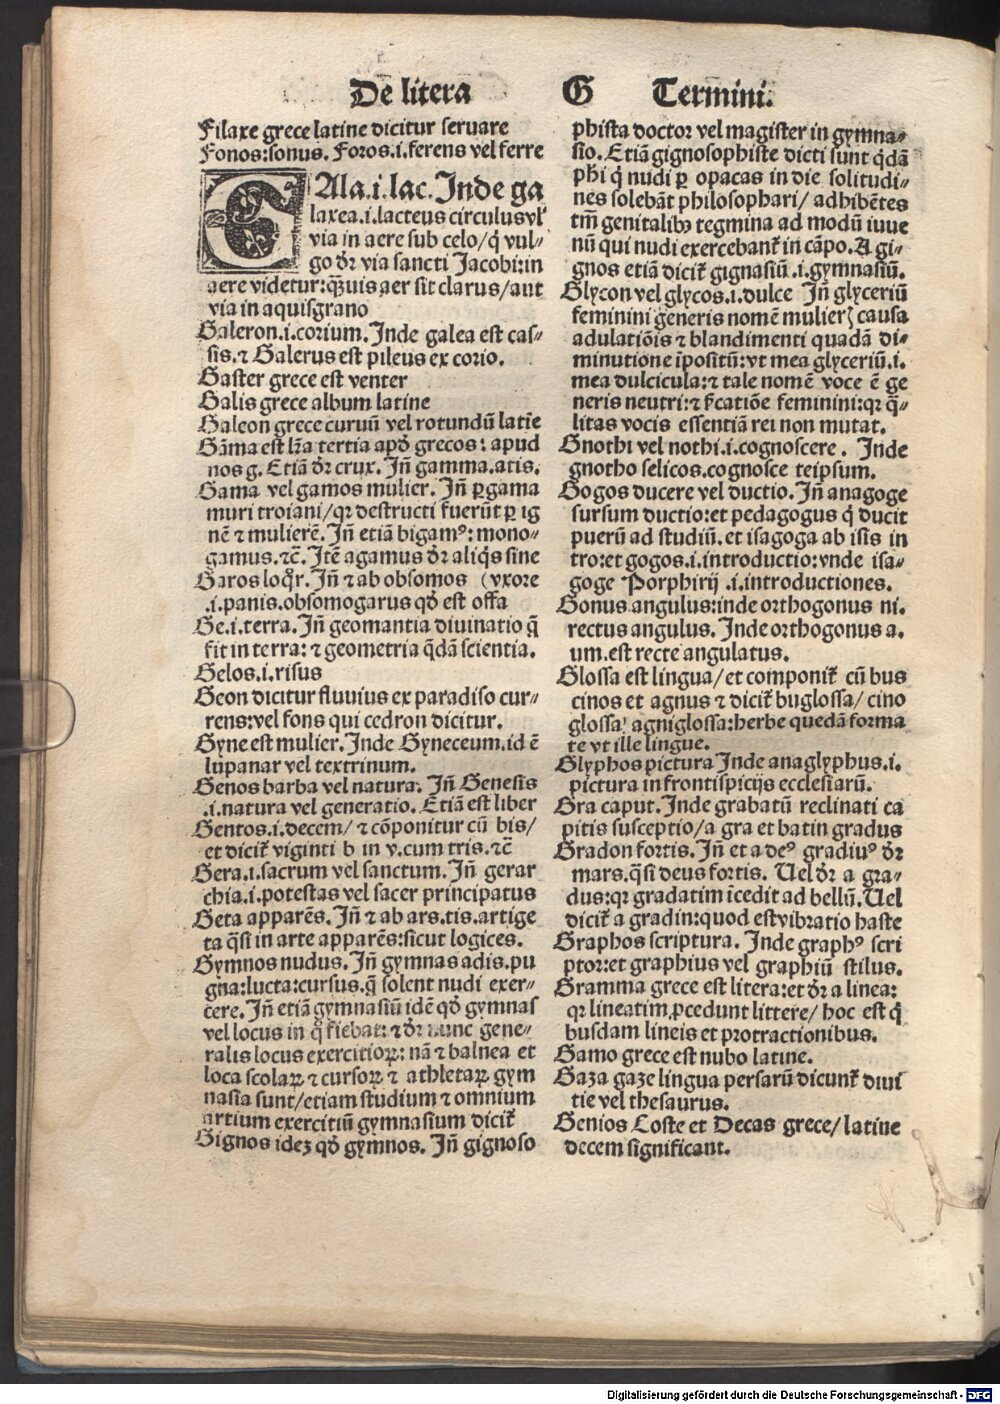 De litera G Termini.
Filaxe grece latine dicitur seruare
Fonos:sonus. Foros.i.ferens vel ferre
GAla.i.lac. Inde ga
laxea.i.lacteus circulus vl'
via in aere sub celo/q̄ vul-
go dr̄ via sancti Jacobi:in
aere videtur:q̄uis aer sit clarus/aut
via in aquisgrano
Galeron.i.corium. Inde galea est cas-
sis.⁊ Galerus est pileus ex corio.
Gaster grece est venter
Galis grece album latine
Galeon grece curuū vel rotundū latīe
Gāma est lr̄a tertia apd̄ grecos: apud
nos g. Etiā dr̄ crux. Iñ gamma.atis.
Gama vel gamos mulier. Iñ ꝑgama
muri troiani/qꝛ destructi fuerūt ꝑ ig
nē ⁊ mulierē. Iñ etiā bigamꝰ: mono-
gamus.⁊c̄. Itē agamus dr̄ aliq̄s sine
Garos loqr̄. Iñ ⁊ ab obsomos (vxore
.i.panis.obsomogarus qd̄ est offa
Ge.i.terra. Iñ geomantia diuinatio q̄
fit in terra: ⁊ geometria q̄dā scientia.
Gelos.i.risus
Geon dicitur fluuius ex paradiso cur-
rens:vel fons qui cedron dicitur.
Gyne est mulier. Inde Gyneceum.id ē
lupanar vel textrinum.
Genos barba vel natura. Iñ Genesis
.i.natura vel generatio. Etiā est liber
Gentos.i.decem/ ⁊ cōponitur cū bis/
et dicit̄ viginti b in v.cum tris.⁊c̄
Gera.i.sacrum vel sanctum. Iñ gerar
chia.i.potestas vel sacer principatus
Geta apparēs. Iñ ⁊ ab ars.tis.artige
ta q̄si in arte apparēs:sicut logices.
Gymnos nudus. Iñ gymnas adis.pu
gna:lucta:cursus.q̄ solent nudi exer-
cere. Iñ etiā gymnasiū idē qd̄ gymnas
vel locus in q̊ fiebat: ⁊ dr̄ nunc gene-
ralis locus exercitioꝝ: nā ⁊ balnea et
loca scolaꝝ ⁊ cursoꝝ ⁊ athletaꝝ gym
nasia sunt/etiam studium ⁊ omnium
artium exercitiū gymnasium dicit̄
Gignos ideꝫ qd̄ gymnos. Iñ gignoso
phista doctor vel magister in gymna-
sio. Etiā gignosophiste dicti sunt q̄dā
ph̄i q̄ nudi ꝑ opacas in die solitudi-
nes solebāt philosophari/ adhibētes
tm̄ genitalibꝰ tegmina ad modū iuue
nū qui nudi exercebant̄ in cāpo. A gi-
gnos etiā dicit̄ gignasiū.i.gymnasiū.
Glycon vel glycos.i.dulce Iñ glyceriū
feminini generis nomē mulierꝭ causa
adulatiōis ⁊ blandimenti quadā di-
minutione īpositū:vt mea glyceriū.i.
mea dulcicula:⁊ tale nomē voce ē ge
neris neutri:⁊ s̄catiōe feminini:qꝛ q̄-
litas vocis essentiā rei non mutat.
Gnothi vel nothi.i.cognoscere. Inde
gnotho selicos.cognosce teipsum.
Gogos ducere vel ductio. Iñ anagoge
sursum ductio:et pedagogus q̄ ducit
puerū ad studiū.et isagoga ab isis in
tro:et gogos.i.introductio:vnde isa-
goge Porphirij .i.introductiones.
Gonus angulus:inde orthogonus ni.
rectus angulus. Inde orthogonus a.
um.est recte angulatus.
Glossa est lingua/ et componit̄ cū bus
cinos et agnus ⁊ dicit̄ buglossa/ cino
glossa/ agniglossa:herbe quedā forma
te vt ille lingue.
Glyphos pictura Inde anaglyphus.i.
pictura in frontispicijs ecclesiarū.
Gra caput. Inde grabatū reclinati ca
pitis susceptio/a gra et batin gradus
Gradon fortis. Iñ et a deꝰ gradiuꝰ dr̄
mars.q̄si deus fortis. Uel dr̄ a gra-
dus:qꝛ gradatim īcedit ad bellū. Uel
dicit̄ a gradin:quod est vibratio haste
Graphos scriptura. Inde graphꝰ scri
ptor:et graphius vel graphiū stilus.
Gramma grece est litera:et dr̄ a linea:
qꝛ lineatim ꝓcedunt littere/ hoc est q̄
busdam lineis et protractionibus.
Gamo grece est nubo latine.
Gaza gaze lingua persarū dicunt̄ diui
tie vel thesaurus.
Genios Coste et Decas grece/ latine
decem significant.
Digitalisierung gefördert durch die Deutsche Forschungsgemeinschaft - DFG